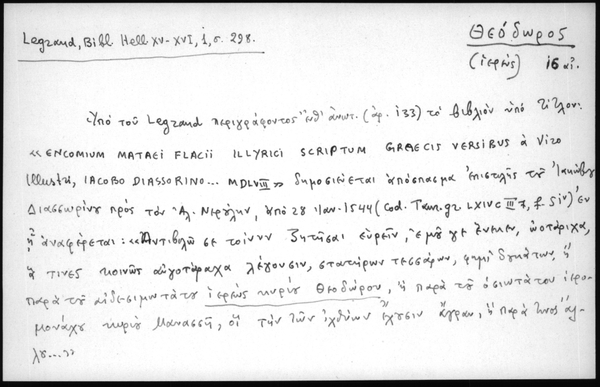 Legrand, Bibl Hell XV-XVI, 1, σ. 298.
Θεόδωρος
(ἱερεὺς) 16 αἰ.
Ὑπὸ τοῦ Legrand περιγράφοντος ἐνθ' ἀνωτ. (ἀρ. 133) τὸ βιβλίον ὑπὸ τίτλον:
«ENCOMIUM MATAEI FLACII ILLYRICI SCRIPTUM GRAECIS VERSIBUS à Viro
Illustri, IACOBO DIASSORINO... MDLVIII» δημοσιεύεται ἀπόσπασμα ἐπιστολῆς τοῦ Ἰακώβου
Διασσωρίνου πρὸς τὸν Ἀγ. Νερούλην, ἀπὸ 28 Ἰαν. 1544 (Cod. Taur. gr LXIV C III 7, f. 51v) ἐν
ᾗ ἀναφέρεται: «Ἀντιβολῶ σε τοίνυν ζητῆσαι εὑρεῖν, ἐμοῦ γε ἕνεκεν, ὠοτάριχα,
ἅ τινες κοινῶς αὐγοτάραχα λέγουσιν, στατήρων τεσσάρων, φημὶ δουκάτων, ἢ
παρὰ τοῦ αἰδεσιμωτάτου ἱερέως κυρίου Θεοδώρου, ἢ παρὰ τοῦ ὁσιωτάτου ἱερο-
μονάχου κυρίου Μανασσῆ, οἳ τὴν τῶν ἰχθύων ἔχουσιν ἄγραν, ἢ παρά τινος ἄλ-
λου...»